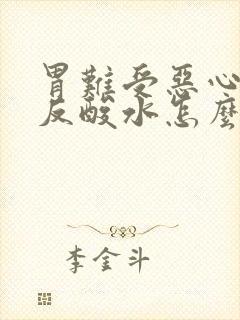 胃難受惡心
反酸水怎麼
李金斗